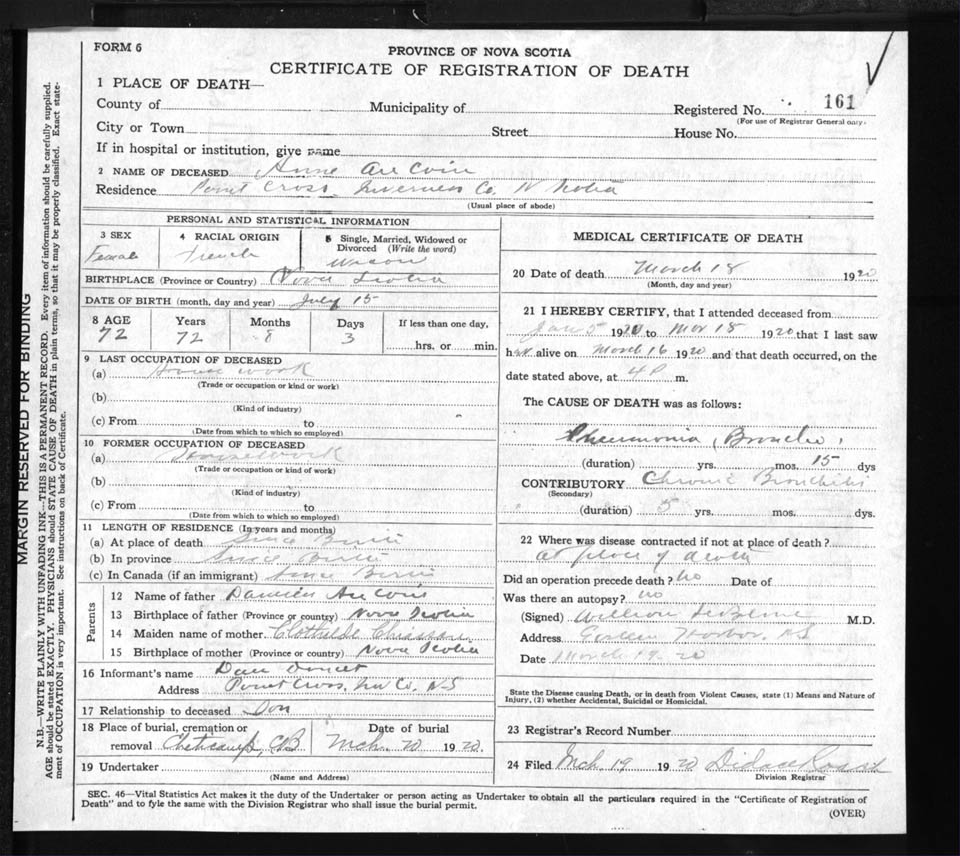 FORM 6
PROVINCE OF NOVA SCOTIA
CERTIFICATE OF REGISTRATION OF DEATH
1 PLACE OF DEATH—
County of Municipality of Registered No. 161
(For use of Registrar General only)
City or Town Street House No.
If in hospital or institution, give name
2 NAME OF DECEASED Anne Au Coin
Residence Point Cross Inverness Co. N Scotia
(Usual place of abode)
PERSONAL AND STATISTICAL INFORMATION
3 SEX 4 RACIAL ORIGIN 5 Single, Married, Widowed or Divorced (Write the word)
Female French Widow
BIRTHPLACE (Province or Country) Nova Scotia
DATE OF BIRTH (month, day and year) July 15
8 AGE Years Months Days If less than one day,
72 72 8 3 hrs. or min.
9 LAST OCCUPATION OF DECEASED
(a) House work
(Trade or occupation or kind or work)
(b)
(Kind of industry)
(c) From to
(Date from which to which so employed)
10 FORMER OCCUPATION OF DECEASED
(a) Housework
(Trade or occupation or kind of work)
(b)
(Kind of industry)
(c) From to
(Date from which to which so employed)
11 LENGTH OF RESIDENCE (In years and months)
(a) At place of death Since Birth
(b) In province Since Birth
(c) In Canada (if an immigrant) Since Birth
Parents
12 Name of father Damien Au Coin
13 Birthplace of father (Province or country) Nova Scotia
14 Maiden name of mother Clothilde Chiasson
15 Birthplace of mother (Province or country) Nova Scotia
16 Informant's name Dan Doucet
Address Point Cross, Inv Co. N-S
17 Relationship to deceased Son
18 Place of burial, cremation or removal Cheticamp, CB
Date of burial Mch. 20 1920
19 Undertaker
(Name and Address)
MEDICAL CERTIFICATE OF DEATH
20 Date of death March 18 1920
(Month, day and year)
21 I HEREBY CERTIFY, that I attended deceased from
Jan 5 1920 to Mar 18 1920 that I last saw
her alive on March 16 1920 and that death occurred, on the
date stated above, at 4 P m.
The CAUSE OF DEATH was as follows:
Pneumonia, Broncho,
(duration) yrs. mos. 15 dys
CONTRIBUTORY Chronic Bronchitis
(Secondary)
(duration) 5 yrs. mos. dys.
22 Where was disease contracted if not at place of death?
at place of death
Did an operation precede death? no Date of
Was there an autopsy? no
(Signed) William LeBlanc M.D.
Address Harbor, NS
Date March 19. 20
State the Disease causing Death, or in death from Violent Causes, state (1) Means and Nature of
Injury, (2) whether Accidental, Suicidal or Homicidal.
23 Registrar's Record Number
24 Filed Mch 19 1920
Division Registrar
SEC. 46—Vital Statistics Act makes it the duty of the Undertaker or person acting as Undertaker to obtain all the particulars required in the "Certificate of Registration of
Death" and to fyle the same with the Division Registrar who shall issue the burial permit.
(OVER)
MARGIN RESERVED FOR BINDING
N.B.—WRITE PLAINLY WITH UNFADING INK—THIS IS A PERMANENT RECORD. Every item of information should be carefully supplied.
AGE should be stated EXACTLY. PHYSICIANS should STATE CAUSE OF DEATH in plain terms, so that it may be properly classified. Exact state-
ment of OCCUPATION is very important. See instructions on back of Certificate.